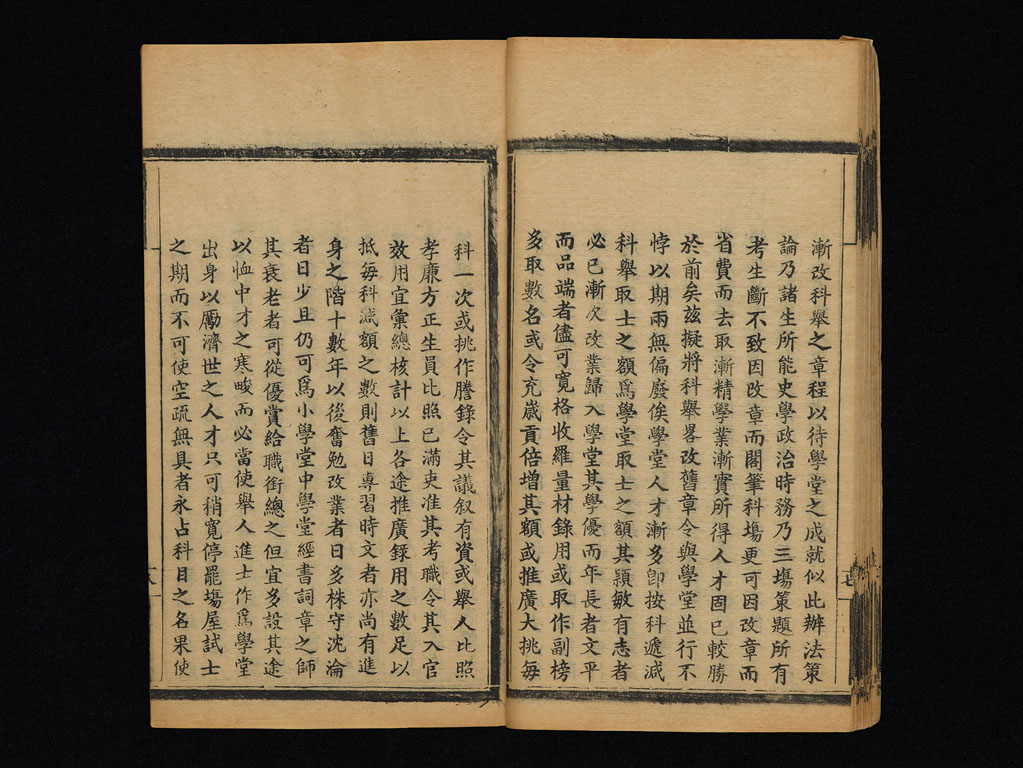 漸改科舉之章程以待學堂之成就似此辦法策
論乃諸生所能史學政治時務乃三塲策題所有
考生斷不致因改章而閣筆科塲更可因改章而
省費而去取漸精學業漸實所得人才固已較勝
於前矣兹擬將科舉畧改舊章令與學堂並行不
悖以期兩無偏廢俟學堂人才漸多卽按科遞減
科舉取士之額爲學堂取士之額其穎敏有志者
必已漸次改業歸入學堂其學優而年長者文平
而品端者儘可寬格收羅量材錄用或取作副榜
多取數名或令充嵗貢倍增其額或推廣大挑每
科一次或挑作謄錄令其議叙有資或舉人比照
孝廉方正生員比照已滿吏准其考職令其入官
效用宜彙總核計以上各途推廣錄用之數足以
抵每科減額之數則舊日專習時文者亦尚有進
身之階十數年以後奮勉改業者日多株守沈淪
者日少且仍可爲小學堂中學堂經書詞章之師
其衰老者可從優賞給職銜總之但宜多設其途
以恤中才之寒畯而必當使舉人進士作爲學堂
出身以勵濟世之人才只可稍寬停罷塲屋試士
之期而不可使空疏無具者永占科目之名果使